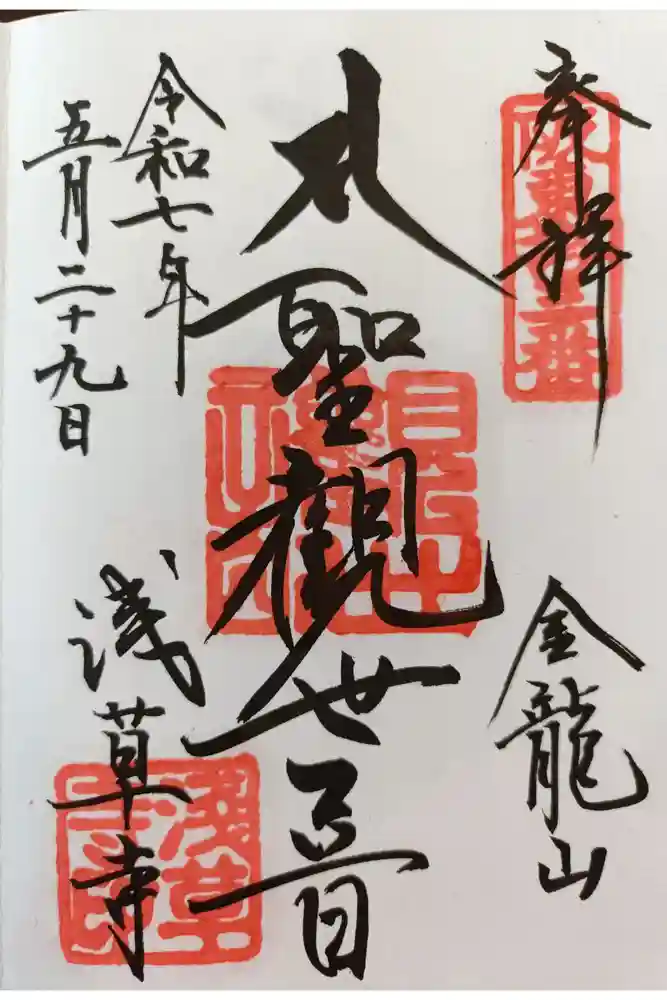 奉拝
坂東十三番
金龍山
大聖観世音
令和七年
五月二十九日
浅草寺